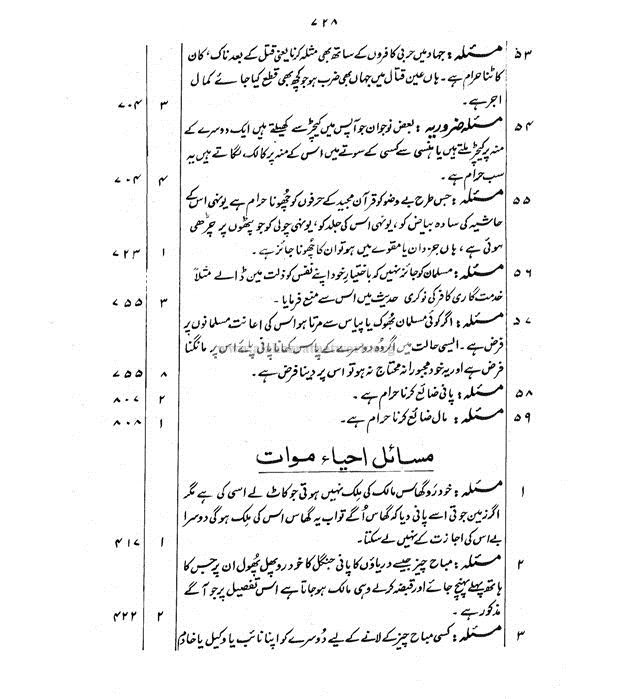 ۷۲۸
۵۳ مسئلہ : جہاد میں حربی کافروں کے ساتھ بھی مثلہ کرنا یعنی قتل کے بعد ناک، کان
کاٹنا حرام ہے۔ ہاں عین قتال میں جہاں بھی ضرب ہو جو کچھ بھی قطع کیا جائے کمال
اجر ہے۔ ۳ ۷۰۴
۵۴ مسئلہ ضروریہ : بعض نوجوان جو آپس میں کیچڑ سے کھیلتے ہیں ایک دوسرے کے
منہ پر کیچڑ ملتے ہیں یا ہنسی سے کسی کے سوتے میں اس کے منہ پر کالک لگاتے ہیں یہ
سب حرام ہے۔ ۴ ۷۰۴
۵۵ مسئلہ : جس طرح بے وضو کو قرآن مجید کے حرفوں کو چھونا حرام ہے یونہی اس کے
حاشیہ کی سادہ بیاض کو، یونہی اس کی جلد کو، یونہی چولی کو جو پٹھوں پر چڑھی
ہوئی ہے، ہاں جزدان یا مقوے میں ہو تو ان کا چھونا جائز ہے۔ ۱ ۷۲۳
۵۶ مسئلہ : مسلمان کو جائز نہیں کہ باختیارِ خود اپنے نفس کو ذلت مین ڈالے مثلاً
خدمت گاری کافر کی نوکری حدیث میں اس سے منع فرمایا۔ ۳ ۷۵۵
۵۷ مسئلہ : اگر کوئی مسلمان بھوک یا پیاس سے مرتا ہو اس کی اعانت مسلمانوں پر
فرض ہے۔ ایسی حالت میں اگر وہ دوسرے کے پاس کھانا پانی پائے اس پر مانگنا
فرض ہے اور یہ خود مجبورانہ محتاج نہ ہو تو اس پر دینا فرض ہے۔ ۸ ۷۵۵
۵۸ مسئلہ : پانی ضائع کرنا حرام ہے۔ ۲ ۸۰۷
۵۹ مسئلہ : مال ضائع کرنا حرام ہے۔ ۱ ۸۰۸
مسائل احیاء موات
۱ مسئلہ : خود رو گھاس مالک کی مِلک نہیں ہوتی جو کاٹ لے اسی کی ہے مگر
اگر زمین جوتی اسے پانی دیا کہ گھاس اُگے تو اب یہ گھاس اس کی مِلک ہو گی دوسرا
بے اس کی اجازت کے نہیں لے سکتا۔ ۱ ۴۱۷
۲ مسئلہ : مباح چیز جیسے دریاؤں کا پانی جنگل کا خود رو پھل پھول ان پر جس کا
ہاتھ پہلے پہنچ جائے اور قبضہ کر لے وہی مالک ہو جاتا ہے اس تفصیل پر جو آگے
مذکور ہے۔ ۲ ۴۲۲
۳ مسئلہ : کسی مباح چیز کے لانے کے لیے دُوسرے کو اپنا نائب یا وکیل یا خادم